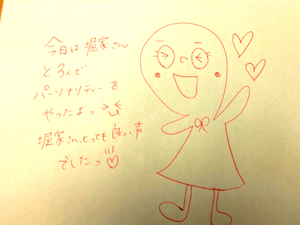 今日は堀家さん
と3人で
パーソナリティーを
やったよっ
堀家さん、とっても良い声
でしたっ!!!♡